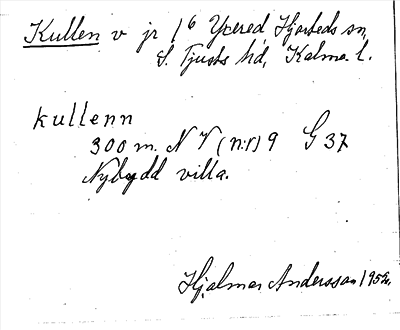 Kullen v jr 1⁶ Yxered Hjorteds sn,
S. Tjusts hd, Kalmar l.
kullenn
300 m. N V (n:r) 9 G 37
Nybygd villa.
Hjalmar Andersson 1952.